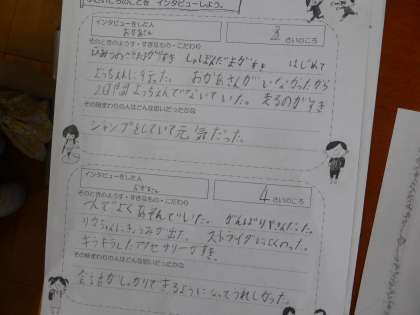 インタビューしよう。
インタビューをした人
おかあさん
3 さいのころ
そのときのようす・すきなもの・こだわり
すき しゃぼんだまがすき はじめて
ようちえんに行った。おかあさんがいなかったから
2日間ようちえんでないていた。走るのがすき
その時まわりの人はどんな思いだったかな
ジャンプをしていて元気だった。
インタビューをした人
おかあさん
4 さいのころ
そのときのようす・すきなもの・こだわり
よくあそんでいた。がんばりやさんだった。
出た。ストライダーにのった。
キラキラしたアクセサリーがすき。
その時まわりの人はどんな思いだったかな
会話がしっかりできるようになってうれしかった。